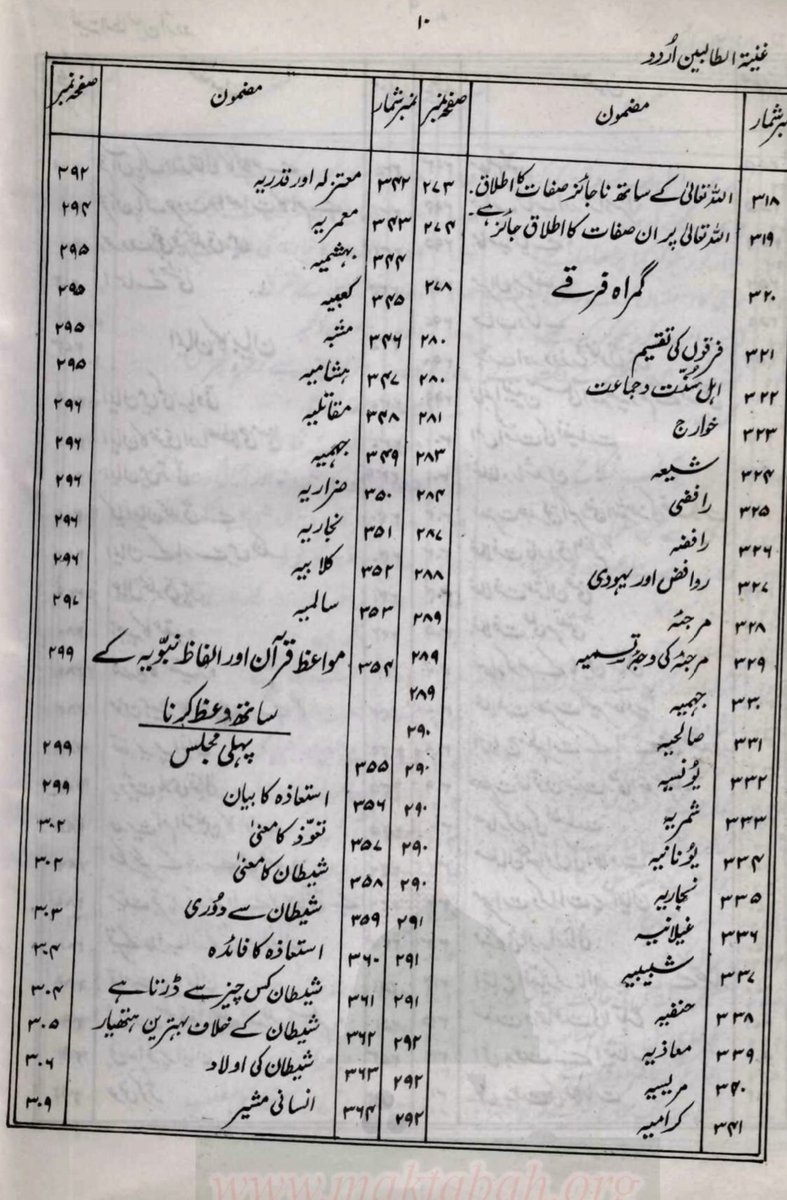 ۱۰
غنیۃ الطالبین اُردو
نمبر شمار مضمون صفحہ نمبر
۳۱۸ اللہ تعالیٰ کے ساتھ ناجائز صفات کا اطلاق۔ ۲۷۳
۳۱۹ اللہ تعالیٰ پر ان صفات کا اطلاق جائز ہے۔ ۲۷۴
۳۲۰ گمراہ فرقے ۲۷۸
۳۲۱ فرقوں کی تقسیم ۲۸۰
۳۲۲ اہل سُنّت وجماعت ۲۸۰
۳۲۳ خوارج ۲۸۱
۳۲۴ شیعہ ۲۸۳
۳۲۵ رافضی ۲۸۴
۳۲۶ رافضہ ۲۸۷
۳۲۷ روافض اور یہودی ۲۸۸
۳۲۸ مرجئہ ۲۸۹
۳۲۹ مرجئہ کی وجۂ تسمیہ ۲۸۹
۳۳۰ جہمیہ ۲۸۹
۳۳۱ صالحیہ ۲۹۰
۳۳۲ یُونسیہ ۲۹۰
۳۳۳ شمریہ ۲۹۰
۳۳۴ یُونانیہ ۲۹۰
۳۳۵ نجاریہ ۲۹۰
۳۳۶ غیلانیہ ۲۹۱
۳۳۷ شبیبیہ ۲۹۱
۳۳۸ حنفیہ ۲۹۱
۳۳۹ معاذیہ ۲۹۲
۳۴۰ مریسیہ ۲۹۲
۳۴۱ کرامیہ ۲۹۲
نمبر شمار مضمون صفحہ نمبر
۳۴۲ معتزلہ اور قدریہ ۲۹۲
۳۴۳ معمریہ ۲۹۴
۳۴۴ بہشمیہ ۲۹۵
۳۴۵ کعبیہ ۲۹۵
۳۴۶ مشبہ ۲۹۵
۳۴۷ ہشامیہ ۲۹۵
۳۴۸ مقاتلیہ ۲۹۶
۳۴۹ جہمیہ ۲۹۶
۳۵۰ ضراریہ ۲۹۶
۳۵۱ نجاریہ ۲۹۶
۳۵۲ کلابیہ ۲۹۶
۳۵۳ سالمیہ ۲۹۷
۳۵۴ مواعظ قرآن اور الفاظ نبوّیہ کے ۲۹۹
ساتھ وعظ کرنا
پہلی مجلس ۲۹۹
۳۵۵ استعاذہ کا بیان ۲۹۹
۳۵۶ تعوّذ کا معنیٰ ۳۰۲
۳۵۷ شیطان کا معنیٰ ۳۰۲
۳۵۸ شیطان سے دُوری ۳۰۳
۳۵۹ استعاذہ کا فائدہ ۳۰۴
۳۶۰ شیطان کس چیز سے ڈرتا ہے ۳۰۴
۳۶۱ شیطان کے خلاف بہترین ہتھیار ۳۰۵
۳۶۲ شیطان کی اولاد ۳۰۶
۳۶۳ انسانی مشیر ۳۰۹
۳۶۴
www.maktabah.org